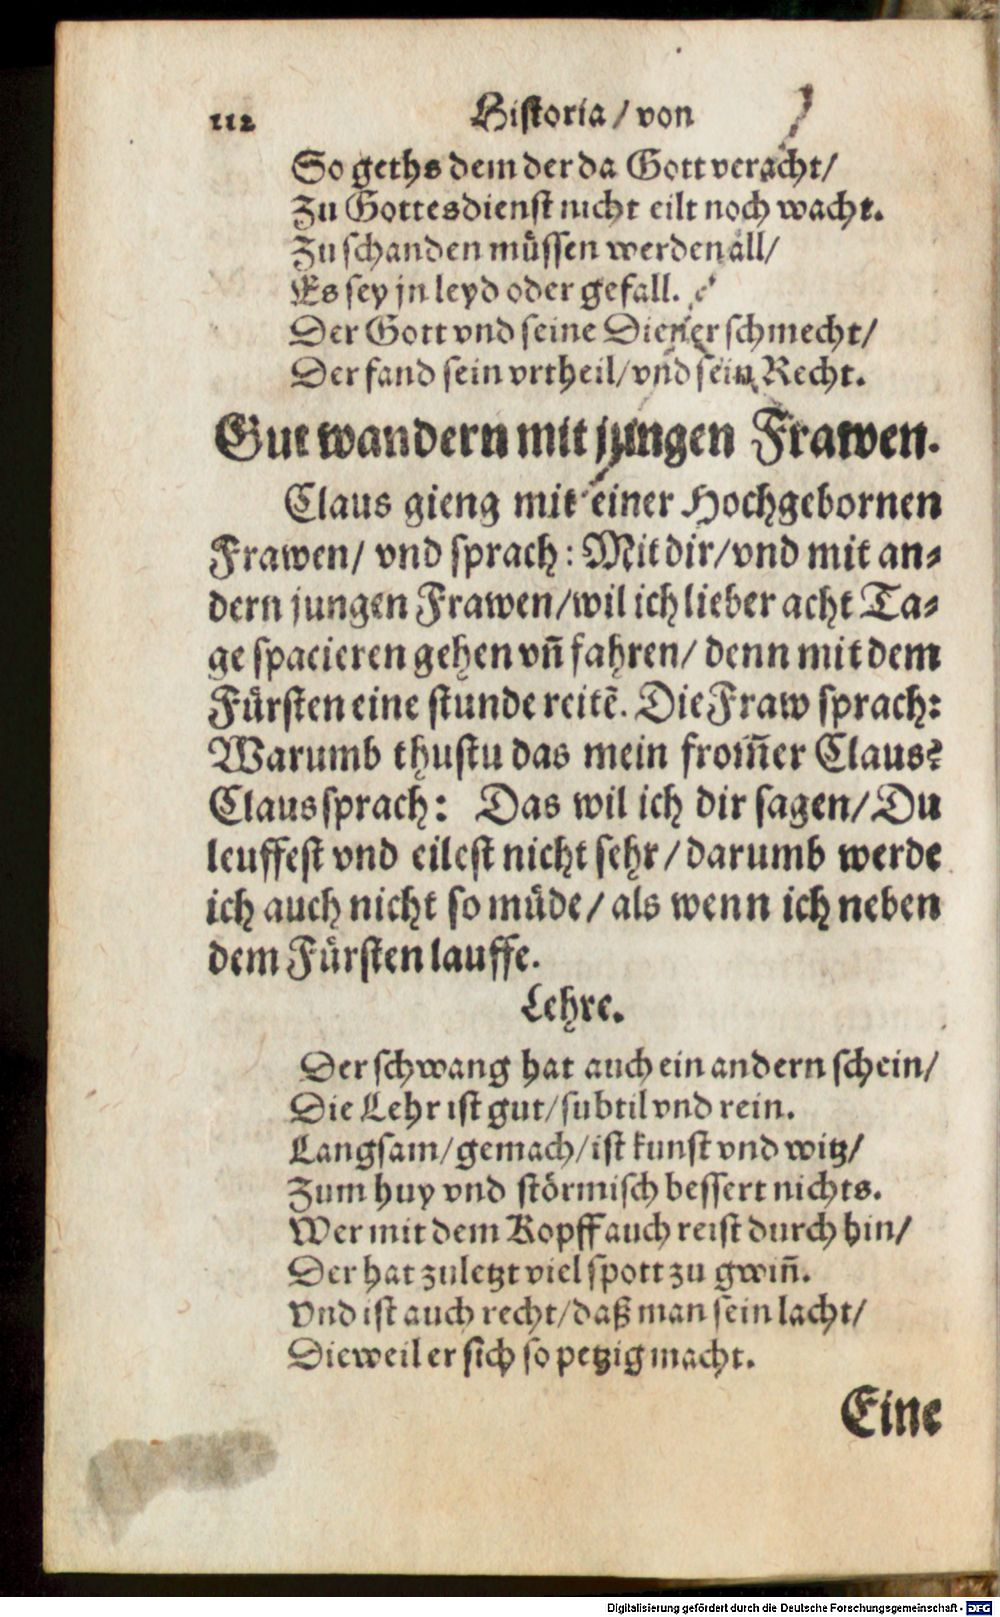 112 Historia / von
So geths dem der da Gott veracht /
Zu Gottesdienst nicht eilt noch wacht.
Zu schanden müssen werden all /
Es sey jn leyd oder gefall.
Der Gott vnd seine Diener schmecht /
Der fand sein vrtheil / vnd sein Recht.
Gut wandern mit jungen Frawen.
Claus gieng mit einer Hochgebornen
Frawen / vnd sprach : Mit dir / vnd mit an⸗
dern jungen Frawen / wil ich lieber acht Ta⸗
ge spacieren gehen vñ fahren / denn mit dem
Fürsten eine stunde reitẽ. Die Fraw sprach :
Warumb thustu das mein from̃er Claus?
Claus sprach : Das wil ich dir sagen / Du
leuffest vnd eilest nicht sehr / darumb werde
ich auch nicht so müde / als wenn ich neben
dem Fürsten lauffe.
Lehre.
Der schwang hat auch ein andern schein /
Die Lehr ist gut / subtil vnd rein.
Langsam / gemach / ist kunst vnd witz /
Zum huy vnd störmisch bessert nichts.
Wer mit dem Kopff auch reist durch hin /
Der hat zuletzt viel spott zu gwiñ.
Vnd ist auch recht / daß man sein lacht /
Dieweil er sich so petzig macht.
Eine
Digitalisierung gefördert durch die Deutsche Forschungsgemeinschaft - DFG